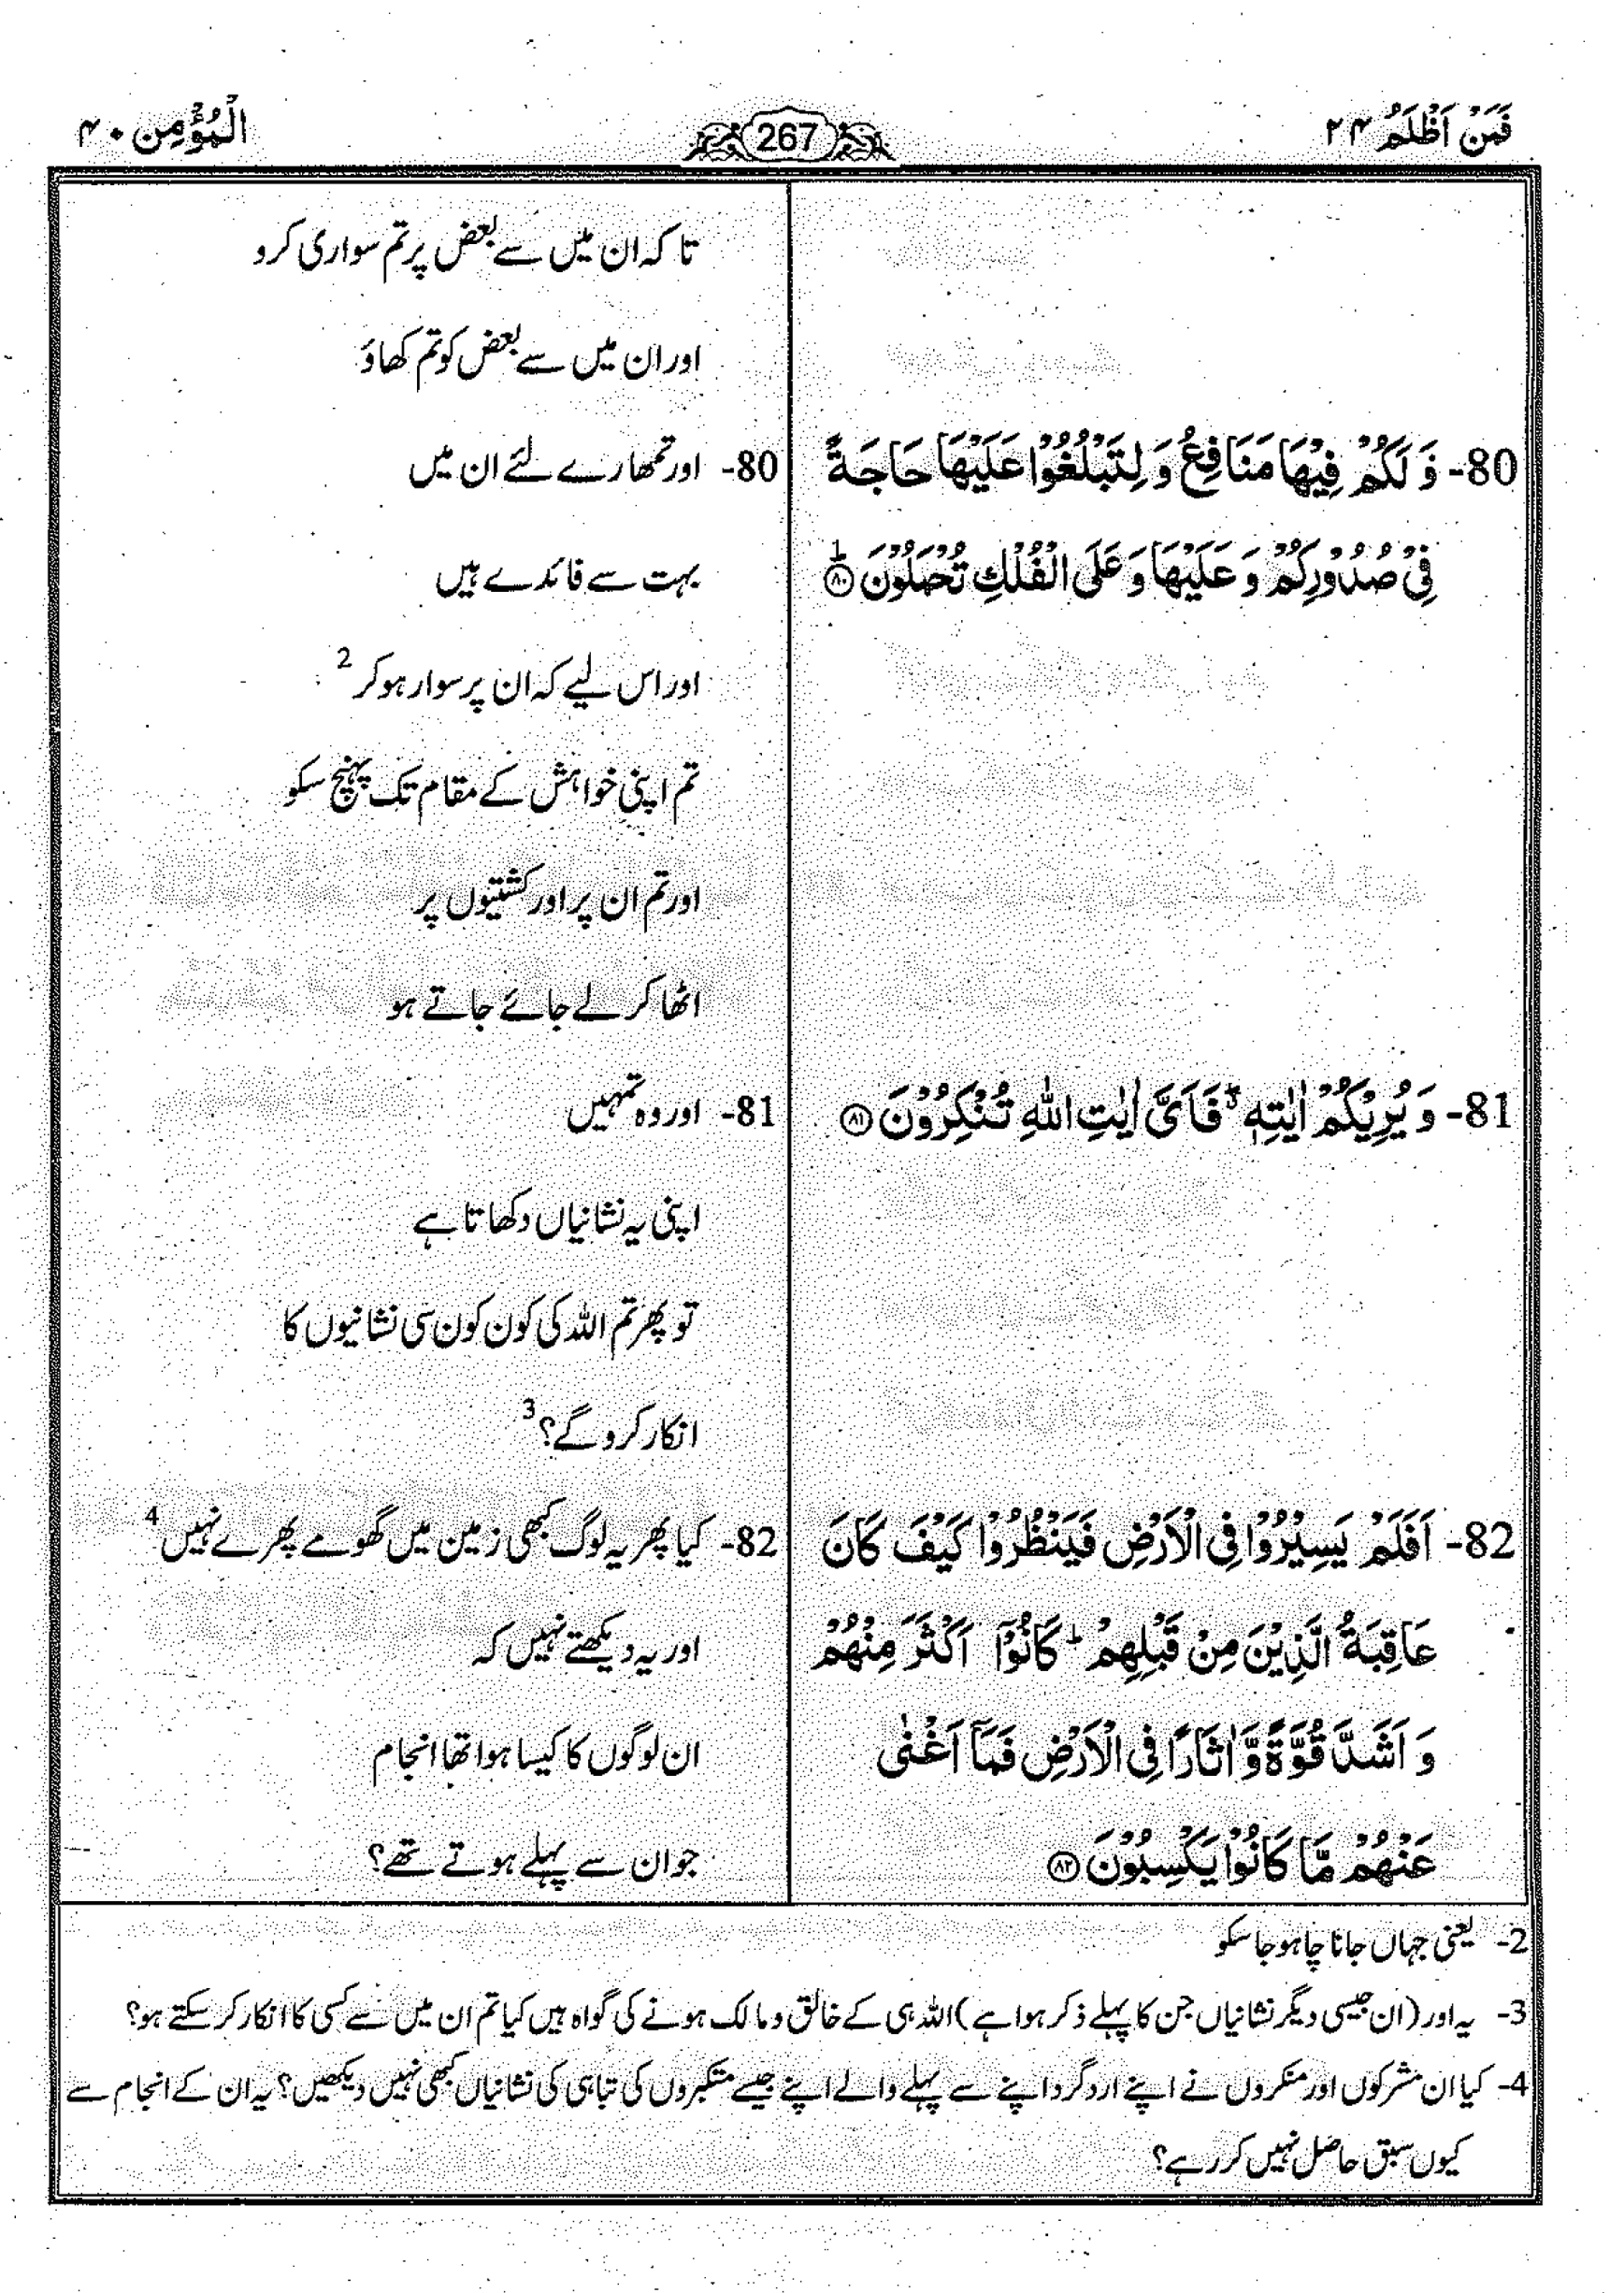 فَمَنْ اَظْلَمُ ۲۴
267
الْمُؤْمِن ۴۰
تا کہ ان میں سے بعض پر تم سواری کرو
اور ان میں سے بعض کو تم کھاؤ
80- وَ لَكُمْ فِيْهَا مَنَافِعُ وَ لِتَبْلُغُوْا عَلَيْهَا حَاجَةً
فِيْ صُدُوْرِكُمْ وَ عَلَيْهَا وَ عَلَى الْفُلْكِ تُحْمَلُوْنَ ؕ ﴿۸۰﴾
80- اور تمھارے لئے ان میں
بہت سے فائدے ہیں
اور اس لیے کہ ان پر سوار ہو کر 2
تم اپنی خواہش کے مقام تک پہنچ سکو
اور تم ان پر اور کشتیوں پر
اٹھا کر لے جائے جاتے ہو
81- وَ يُرِيْكُمْ اٰيٰتِهٖ ۖۗ فَاَيَّ اٰيٰتِ اللّٰهِ تُنْكِرُوْنَ ﴿۸۱﴾
81- اور وہ تمہیں
اپنی یہ نشانیاں دکھاتا ہے
تو پھر تم اللہ کی کون کون سی نشانیوں کا
انکار کرو گے؟ 3
82- اَفَلَمْ يَسِيْرُوْا فِي الْاَرْضِ فَيَنْظُرُوْا كَيْفَ كَانَ
عَاقِبَةُ الَّذِيْنَ مِنْ قَبْلِهِمْ ؕ كَانُوْۤا اَكْثَرَ مِنْهُمْ
وَ اَشَدَّ قُوَّةً وَّ اٰثَارًا فِي الْاَرْضِ فَمَاۤ اَغْنٰى
عَنْهُمْ مَّا كَانُوْا يَكْسِبُوْنَ ﴿۸۲﴾
82- کیا پھر یہ لوگ کبھی زمین میں گھومے پھرے نہیں 4
اور یہ دیکھتے نہیں کہ
ان لوگوں کا کیسا ہوا تھا انجام
جو ان سے پہلے ہوتے تھے؟
2- یعنی جہاں جانا چاہو جا سکو
3- یہ اور (ان جیسی دیگر نشانیاں جن کا پہلے ذکر ہوا ہے) اللہ ہی کے خالق و مالک ہونے کی گواہ ہیں کیا تم ان میں سے کسی کا انکار کر سکتے ہو؟
4- کیا ان مشرکوں اور منکروں نے اپنے اردگرد اپنے سے پہلے والے اپنے جیسے متکبروں کی تباہی کی نشانیاں کبھی نہیں دیکھیں؟ یہ ان کے انجام سے
کیوں سبق حاصل نہیں کر رہے؟